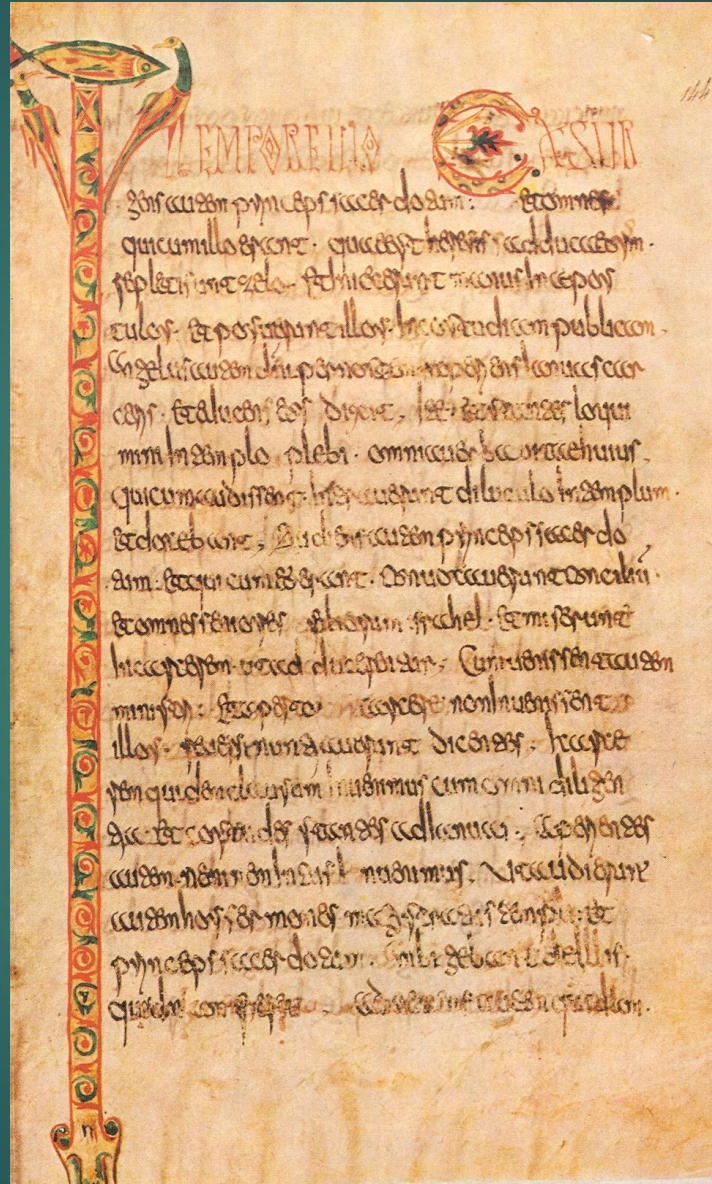 TEMPORE ILLO EXSUR
gens autem princeps sacerdotum. Et omnes
qui cum illo erant. quae est heresis sadducaeorum.
repleti sunt zelo. Et iniecerunt manus in apos
tulos. Et posuerunt illos in custodiam publicam.
Angelus autem dni per noctem aperiens ianuas car
ceris. Et educens eos dixit. Ite et stantes loqui
mini in templo plebi. omnia verba vitae huius.
qui cum audissent. intraverunt diluculo in templum.
et docebant. Audiens autem princeps sacerdo
tum. et qui cum eo erant. convocaverunt conciliū.
et omnes seniores filiorum israhel. Et miserunt
in carcerem ut adducerentur. Cum venissent autem
ministri. Et aperto carcere non invenissent
illos. reversi nuntiaverunt dicentes. carce
rem quidem clausum invenimus cum omni diligen
tia. Et custodes stantes ad ianuas. Aperientes
autem neminem intus invenimus. Ut audierunt
autem hos sermones magistratus templi. et
principes sacerdotum. ambigebant de illis.
quidnam fieret. Adveniens autem quidam.